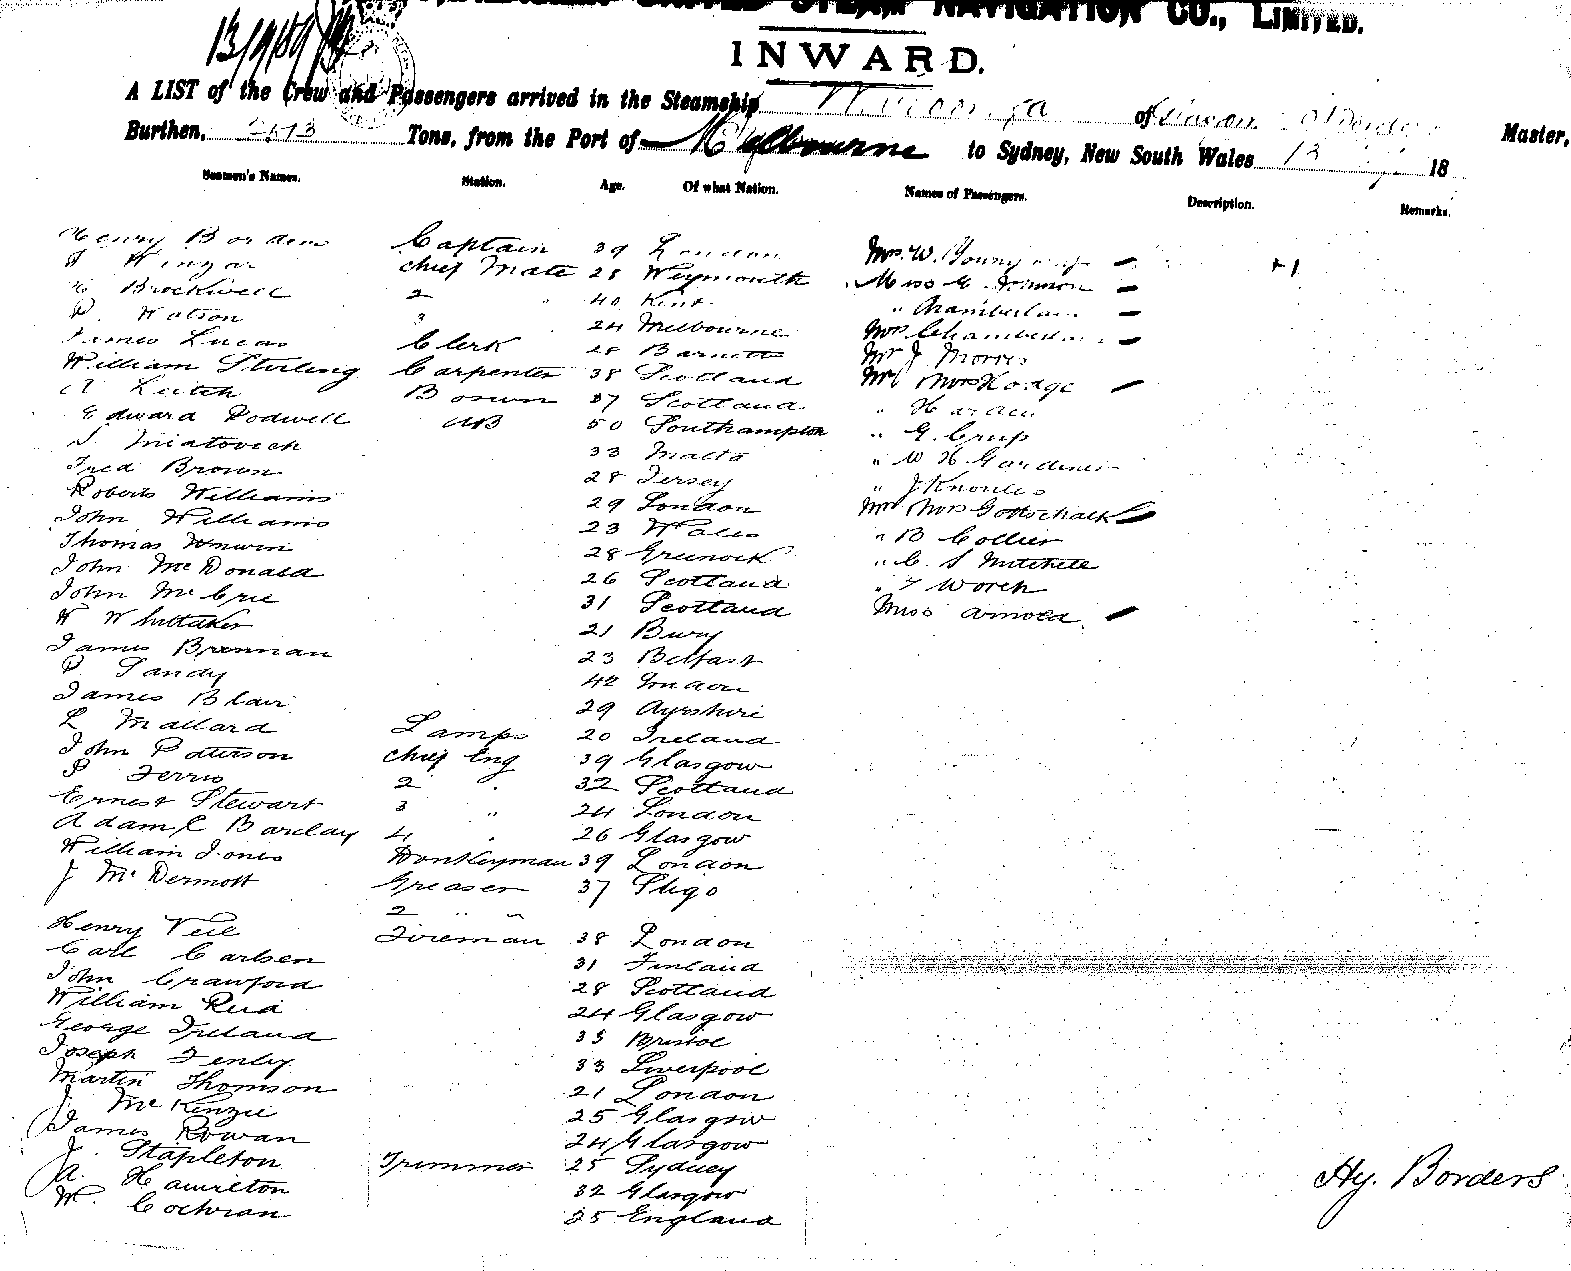 UNITED STEAM NAVIGATION CO., LIMITED.
13/9/89
INWARD.
A LIST of the Crew and Passengers arrived in the Steamship of
Burthen, Tons, from the Port of Melbourne to Sydney, New South Wales 13 18 Master,
Seamen's Names. Station. Age. Of what Nation. Names of Passengers. Description. Remarks.
Henry Borders Captain 39 London Mrs. W. Young
Chief Mate 28 Weymouth Miss
Brockwell 2 " 40 Kent " Chamberlain
Watson 3 24 Melbourne Mrs Chamberlain
James Lucas Clerk 28 Mr J Morris
William Sterling Carpenter 38 Scotland Mr Mrs Hodge
A Leitch Bosun 37 Scotland "
Edward Dodwell AB 50 Southampton " G. Crisp
S. Miatovich 33 Malta " W H Gardiner
Fred Brown 28 Jersey " J Knowles
Roberts Williams 29 London Mr Mrs Gottschalk
John Williams 23 Wales " B Collier
Thomas Unwin 28 Greenock " C. S Mitchell
John McDonald 26 Scotland " T Worch
John McCrie 31 Scotland Miss Arnold
W Whittaker 21 Bury
James Brennan 23 Belfast
P. Sandy 42 London
James Blair 29 Ayrshire
L Mallard Lamps 20 Ireland
John Paterson Chief Eng 39 Glasgow
P Ferris 2 " 32 Scotland
Ernest Stewart 3 " 24 London
Adam C Barclay 4 " 26 Glasgow
William Jones Donkeyman 39 London
J McDermott Greaser 37 Sligo
2 " "
Henry Veil Fireman 38 London
Carl Carlsen 31 Finland
John Crawford 28 Scotland
William Reid 24 Glasgow
George Ireland 35 Bristol
Joseph Fenley 33 Liverpool
Martin Thomson 21 London
J. McKenzie 25 Glasgow
James Rowan 24 Glasgow
J. Stapleton Trimmer 25 Sydney
A. Hamilton 32 Glasgow
W. Cochran 25 England
Hy. Borders